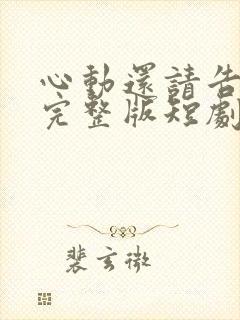 心動還請告
完整版短劇
裴玄微